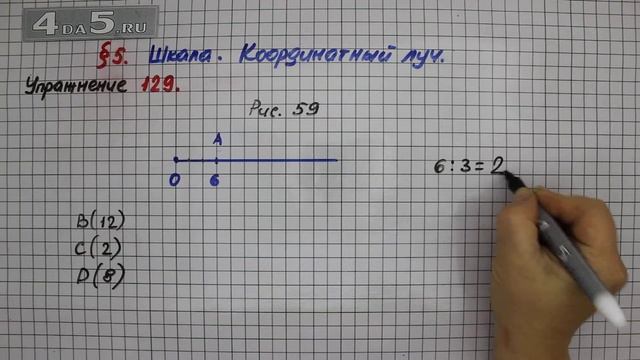 4DA5.RU
§5. Шкала. Координатный луч.
Упражнение 129.
Рис. 59
A
0 6
6 : 3 = 2
B(12)
C(2)
D(8)